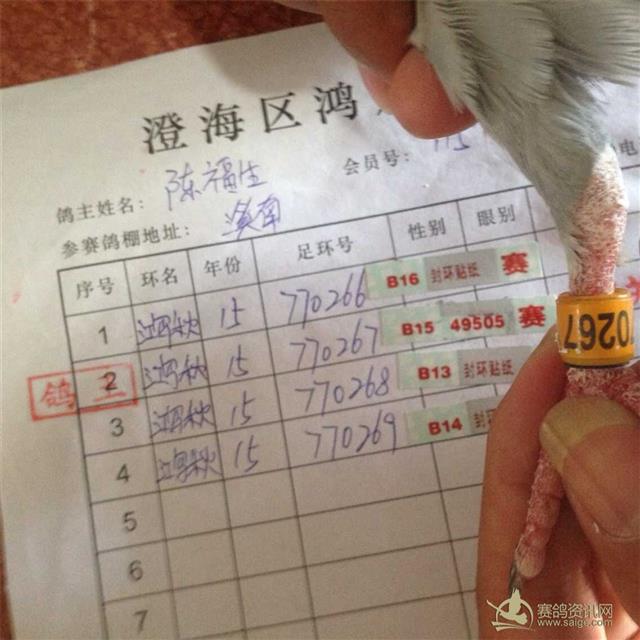 澄海区鸿
鸽主姓名：陈福生 会员号：
参赛鸽棚地址：溪南 电
序号 环名 年份 足环号 性别 眼别
1 鸿秋 15 770266 B16 封环贴纸 赛
2 鸿秋 15 770267 B15 49505 赛
鸽主
3 鸿秋 15 770268 B13 封环贴纸
4 鸿秋 15 770269 B14 封环
5
6
7
0267
赛鸽资讯网
www.saige.com